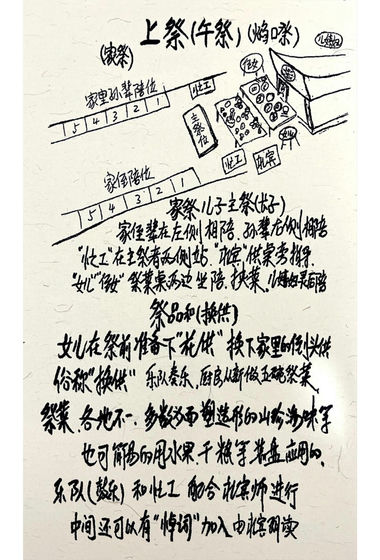 上祭(午祭)(焰口祭)
(家祭)
儿媳妇
家里孙辈陪位
忙工
侄女
5 4 3 2 1
主祭位
忙工
礼宾
女儿
家侄陪位
5 4 3 2 1
家祭儿子主祭(长子)
家侄辈在左侧相陪 孙辈右侧相陪
"忙工"在主祭者两侧站."礼宾"供桌旁指挥.
"女儿""侄女"祭菜桌两边坐陪.挟菜.儿媳妇灵后陪
祭品和(换供)
女儿在祭前准备下"花供"换下家里的倒头供
俗称"换供" 乐队奏乐.厨房从新做五碗祭菜.
祭菜.各地不一.多数为面塑造形的山珍海味等
也可简易的用水果.干粮等装盘应用的.
乐队(鼓乐)和忙工 配合礼宾师进行
中间还可以有"悼词"加入由礼宾朗读